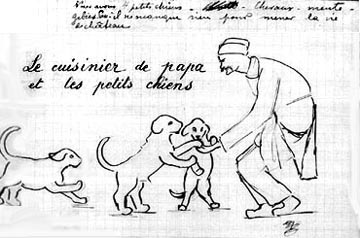 Nous avons 4 petits chiens chevaux
il ne manque rien pour mener la vie
de château
Le cuisinier de papa
et les petits chiens